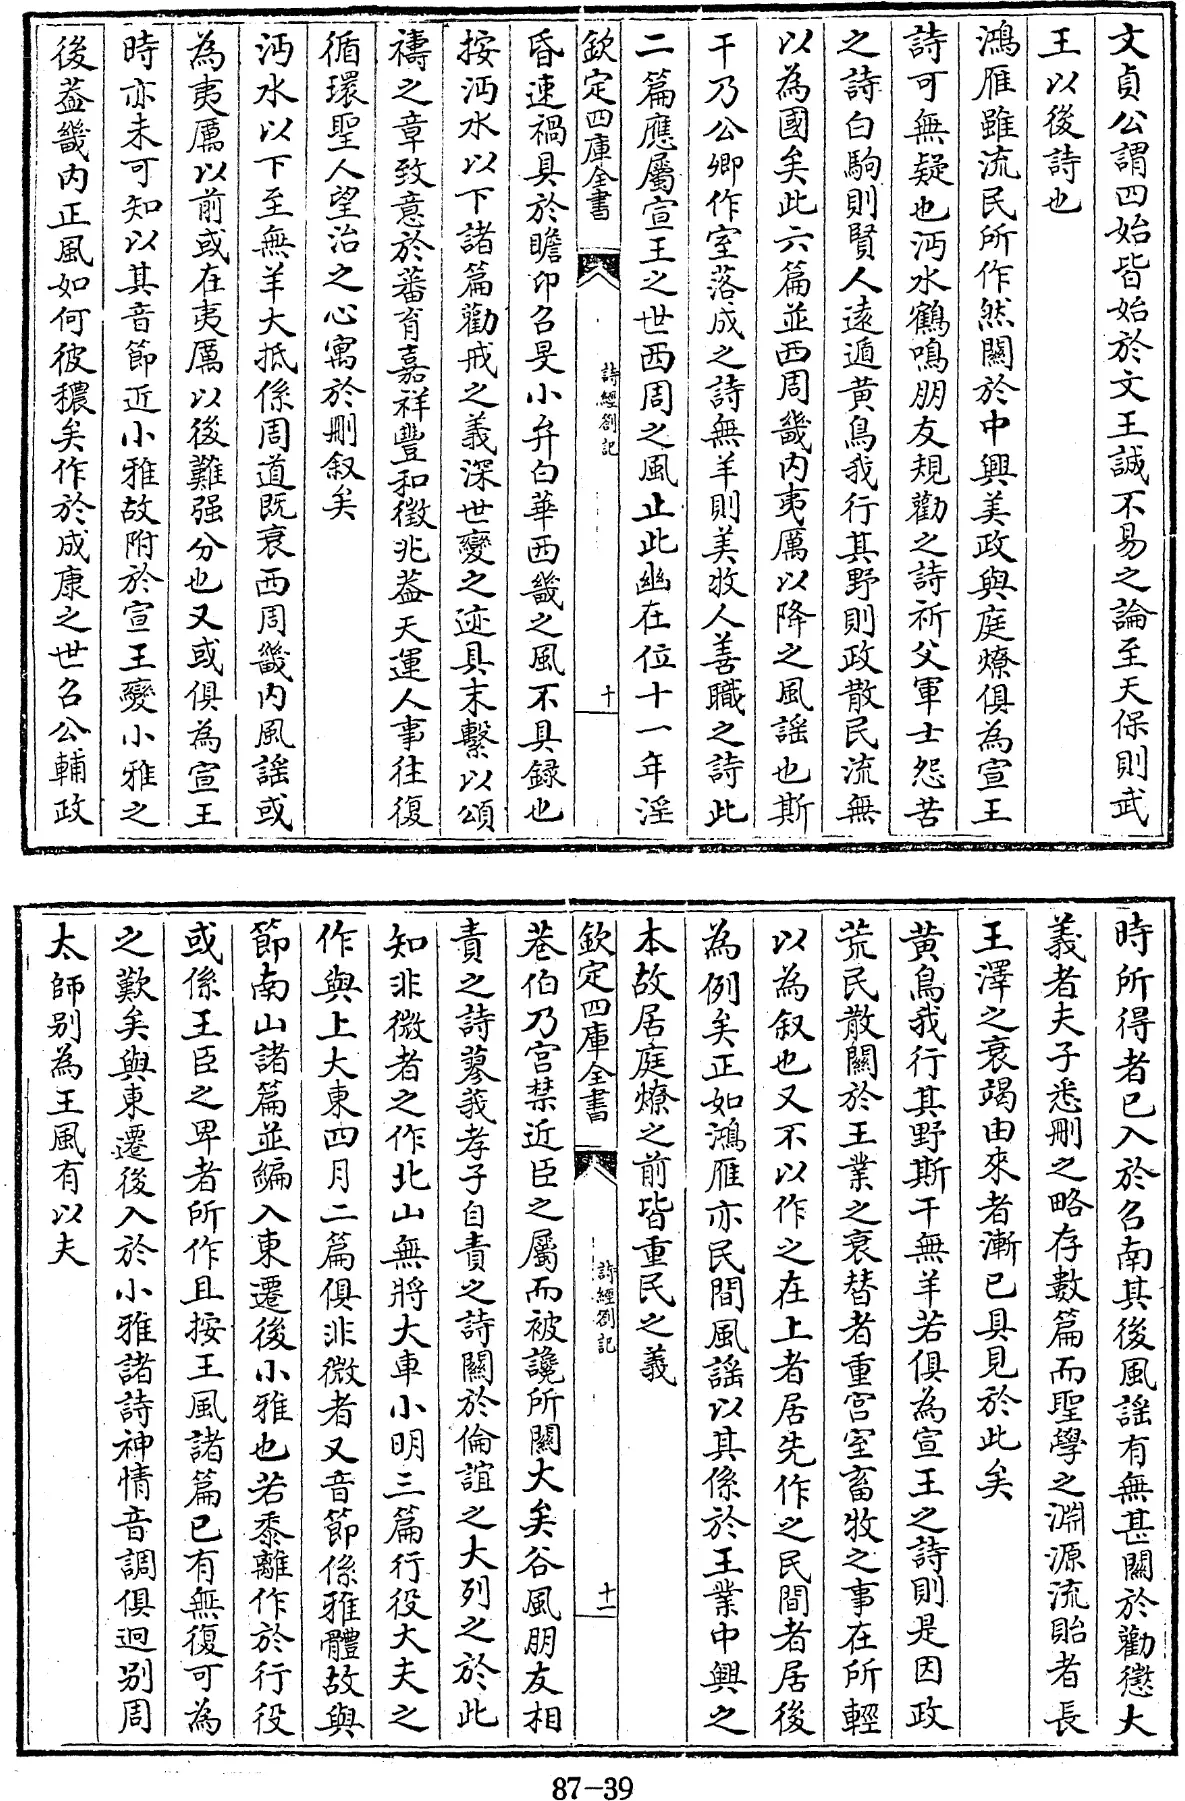 文貞公謂四始皆始於文王誠不易之論至天保則武
王以後詩也
鴻雁雖流民所作然關於中興美政與庭燎俱為宣王
詩可無疑也沔水鶴鳴朋友規勸之詩祈父軍士怨苦
之詩白駒則賢人遠遁黄鳥我行其野則政散民流無
以為國矣此六篇並西周畿内夷厲以降之風謡也斯
干乃公卿作室落成之詩無羊則美牧人善職之詩此
二篇應屬宣王之世西周之風止此幽在位十一年淫
欽定四庫全書
詩經劄記
十
昏速禍具於瞻卬召旻小弁白華西畿之風不具録也
按沔水以下諸篇勸戒之義深世變之迹具末繫以頌
禱之章致意於蕃育嘉祥豐和徵兆葢天運人事往復
循環聖人望治之心寓於刪叙矣
沔水以下至無羊大抵係周道既衰西周畿内風謡或
為夷厲以前或在夷厲以後難强分也又或俱為宣王
時亦未可知以其音節近小雅故附於宣王變小雅之
後葢畿内正風如何彼穠矣作於成康之世召公輔政
時所得者已入於召南其後風謡有無甚關於勸懲大
義者夫子悉刪之略存數篇而聖學之淵源流貽者長
王澤之衰竭由來者漸已具見於此矣
黄鳥我行其野斯干無羊若俱為宣王之詩則是因政
荒民散關於王業之衰替者重宫室畜牧之事在所輕
以為叙也又不以作之在上者居先作之民間者居後
為例矣正如鴻雁亦民間風謡以其係於王業中興之
本故居庭燎之前皆重民之義
欽定四庫全書
詩經劄記
十一
巷伯乃宫禁近臣之屬而被讒所關大矣谷風朋友相
責之詩蓼莪孝子自責之詩關於倫誼之大列之於此
知非微者之作北山無將大車小明三篇行役大夫之
作與上大東四月二篇俱非微者又音節係雅體故與
節南山諸篇並編入東遷後小雅也若黍離作於行役
或係王臣之卑者所作且按王風諸篇已有無復可為
之歎矣與東遷後入於小雅諸詩神情音調俱迥别周
太師别為王風有以夫
87-39